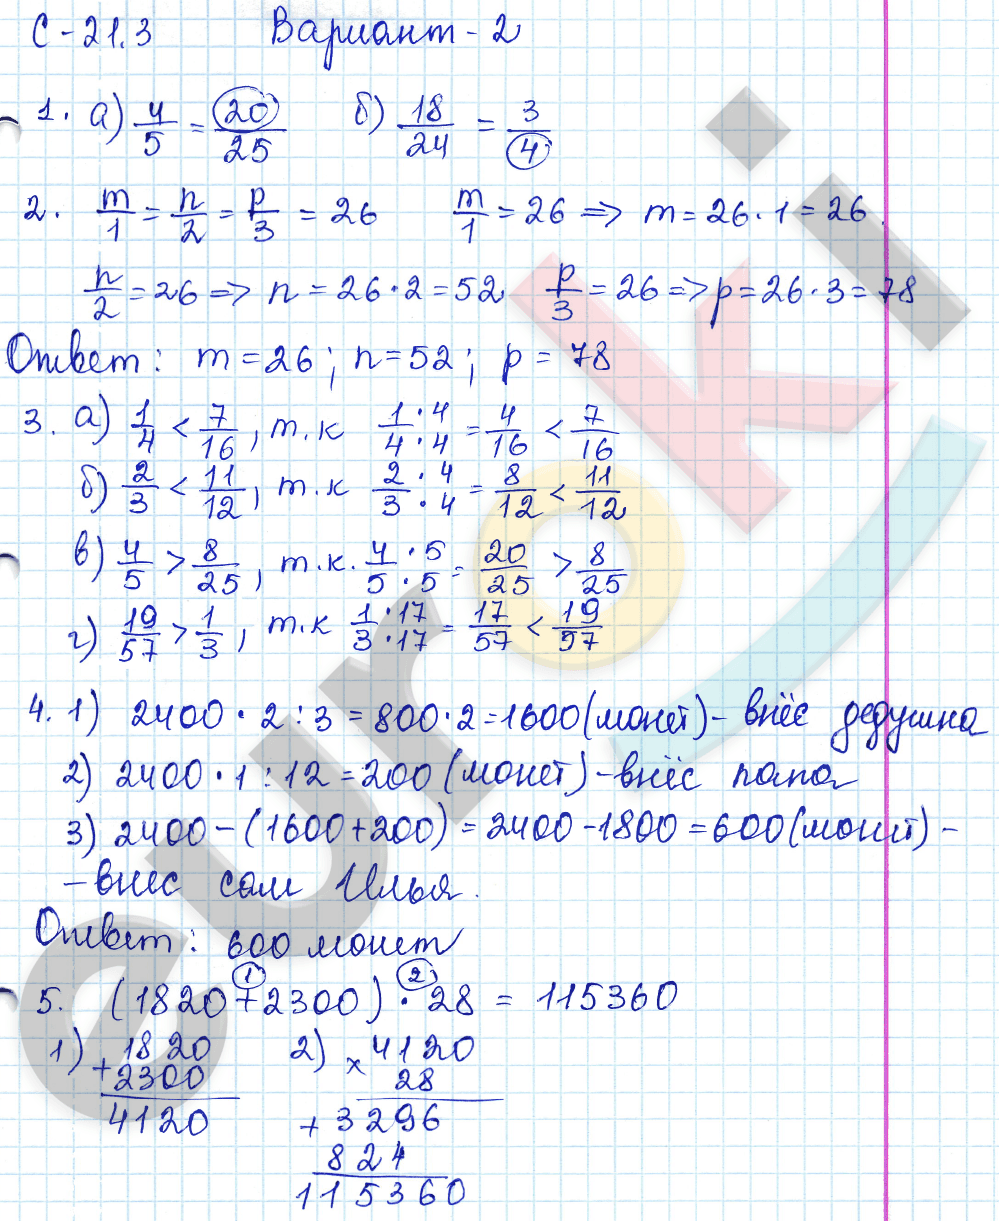 С-21.3 Вариант-2
1. а) 4/5 = 20/25 б) 18/24 = 3/4
2. m/1 = n/2 = p/3 = 26 m/1 = 26 => m = 26·1 = 26.
n/2 = 26 => n = 26·2 = 52 p/3 = 26 => p = 26·3 = 78
Ответ: m = 26; n = 52; p = 78
3. а) 1/4 < 7/16, т.к 1·4/4·4 = 4/16 < 7/16
б) 2/3 < 11/12, т.к 2·4/3·4 = 8/12 < 11/12
в) 4/5 > 8/25, т.к. 4·5/5·5 = 20/25 > 8/25
г) 19/57 > 1/3, т.к 1·17/3·17 = 17/57 < 19/97
4. 1) 2400·2:3 = 800·2 = 1600 (монет) - внёс дедушка
2) 2400·1:12 = 200 (монет) - внёс папа
3) 2400 - (1600+200) = 2400 - 1800 = 600 (монет) -
- внёс сам Илья.
Ответ: 600 монет
1 2
5. (1820+2300)·28 = 115360
1) 1820 2) 4120
+2300 × 28
4120 + 3296
824
115360
euroki